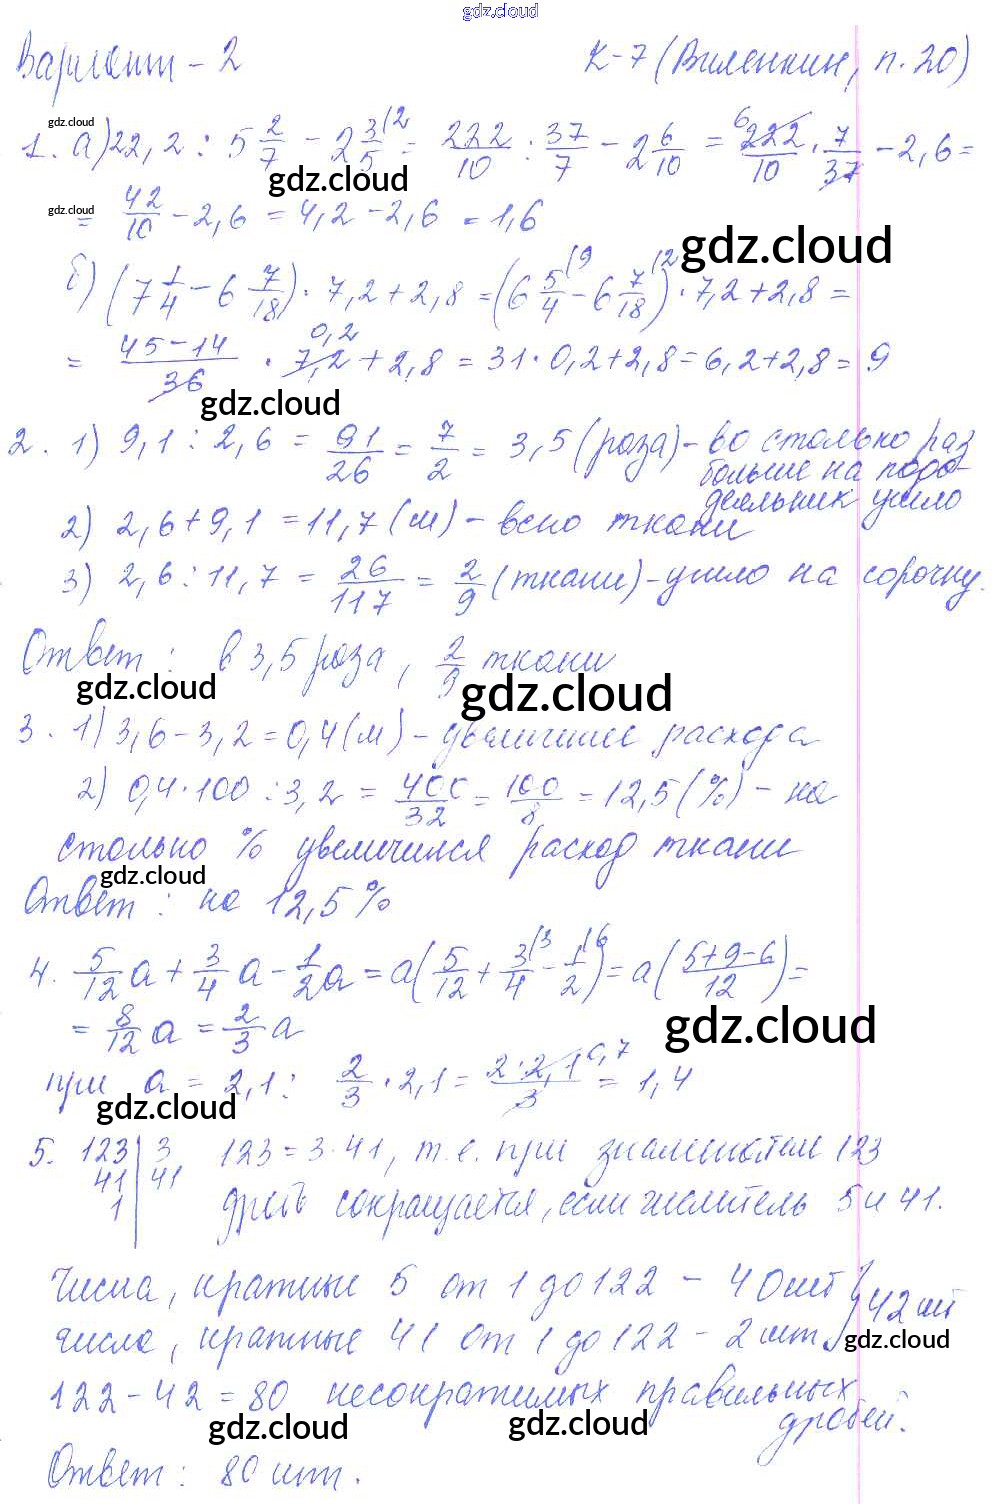 gdz.cloud
Вариант - 2 К-7 (Виленкин, п. 20)
gdz.cloud
1. а) 22,2 : 5 2/7 - 2 3/5 (2 = 222/10 : 37/7 - 2 6/10 = 6 222/10 · 7/37 - 2,6 =
gdz.cloud
gdz.cloud
= 42/10 - 2,6 = 4,2 - 2,6 = 1,6
gdz.cloud
б) (7 1/4 - 6 7/18) · 7,2 + 2,8 = (6 5/4 (9 - 6 7/18 (2) · 7,2 + 2,8 =
= 45-14/36 · 7,2 0,2 + 2,8 = 31 · 0,2 + 2,8 = 6,2 + 2,8 = 9
gdz.cloud
2. 1) 9,1 : 2,6 = 91/26 = 7/2 = 3,5 (раза) - во столько раз
больше на подо-
деяльник ушло
2) 2,6 + 9,1 = 11,7 (м) - всего ткани
3) 2,6 : 11,7 = 26/117 = 2/9 (ткани) - ушло на сорочку.
Ответ: в 3,5 раза, 2/9 ткани
gdz.cloud gdz.cloud
3. 1) 3,6 - 3,2 = 0,4 (м) - увеличние расхода
2) 0,4 · 100 : 3,2 = 400/32 = 100/8 = 12,5 (%) - на
столько % увеличился расход ткани
gdz.cloud
Ответ: на 12,5 %
4. 5/12 a + 3/4 a - 1/2 a = a (5/12 + 3/4 (3 - 1/2 (6) = a (5+9-6/12) =
= 8/12 a = 2/3 a
gdz.cloud
при a = 2,1: 2/3 · 2,1 = 2 · 2,1 0,7/3 = 1,4
gdz.cloud
5. 123 | 3 123 = 3 · 41, т.е. при знаменателе 123
41 | 41 дробь сокращается, если числитель 5 и 41.
1 |
Числа, кратные 5 от 1 до 122 - 40 шт } 42 шт
числа, кратные 41 от 1 до 122 - 2 шт.
gdz.cloud
122 - 42 = 80 несократимых правильных
дробей.
gdz.cloud gdz.cloud
Ответ: 80 шт.